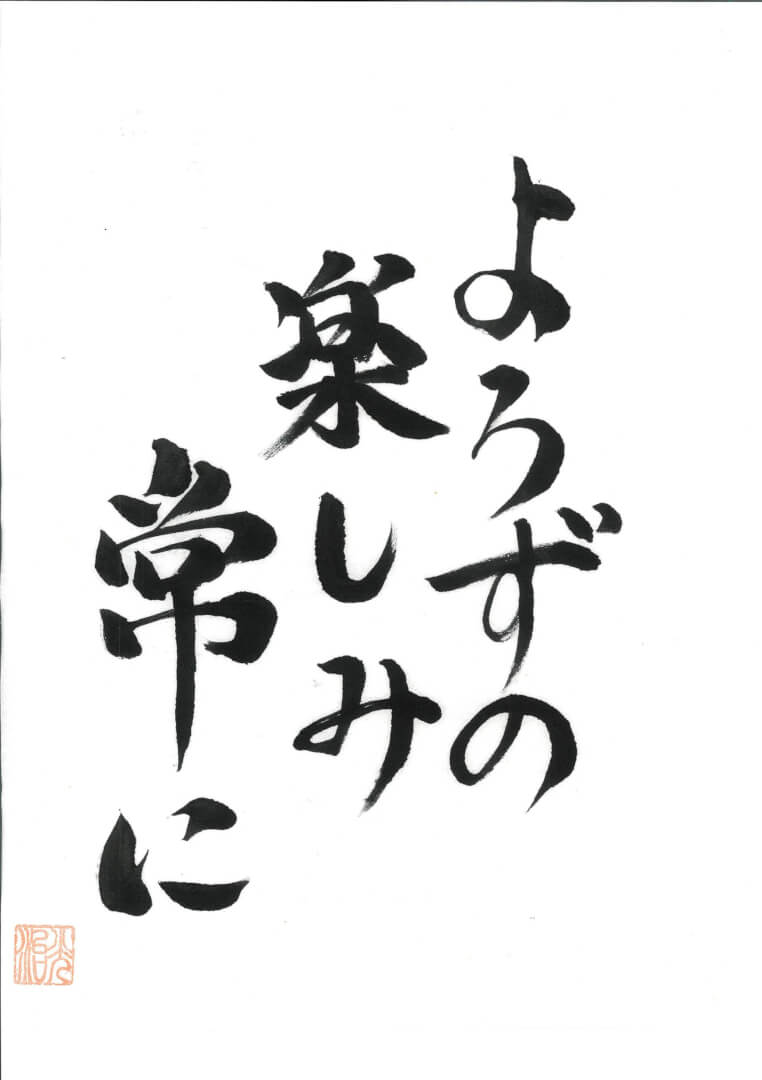 よろずの
楽しみ
常に